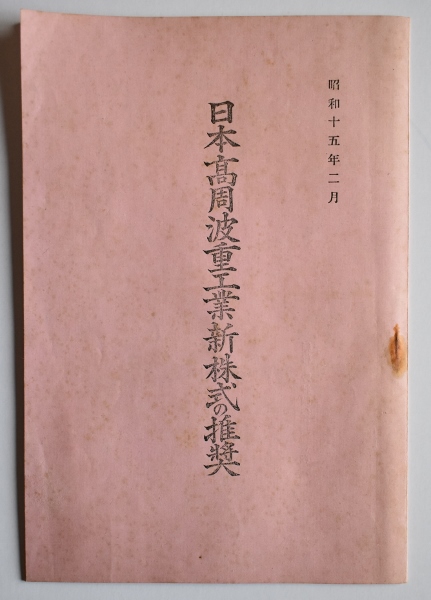 昭和十五年二月
日本髙周波重工業新株式の推奬